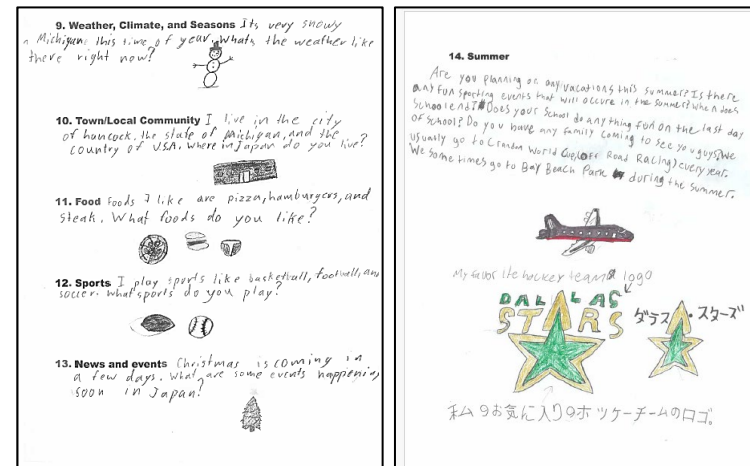 9. Weather, Climate, and Seasons Its very snowy
n Michigan this time of year. Whats the weather like
there right now?
10. Town/Local Community I live in the city
of hancock, the state of michigan, and the
country of USA. Where in Japan do you live?
11. Food foods I like are pizza, hamburgers, and
steak. What foods do you like?
12. Sports I play sports like basketball, football, and
soccer. What sports do you play?
13. News and events Christmas is coming in
a few days. What are some events happening
soon in Japan?
14. Summer
Are you planning on any vacations this summer? Is there
any fun sporting events that will occure in the summer? When does
school end? Does your school do any thing fun on the last day
of school? Do you have any family coming to see you guys? We
usually go to Crandon World Cup (Off Road Racing) every year.
We some times go to Bay Beach Park during the summer.
My favorite hockey team logo
DALLAS
STARS
ダラス・スターズ
私のお気に入りのホッケーチームのロゴ。